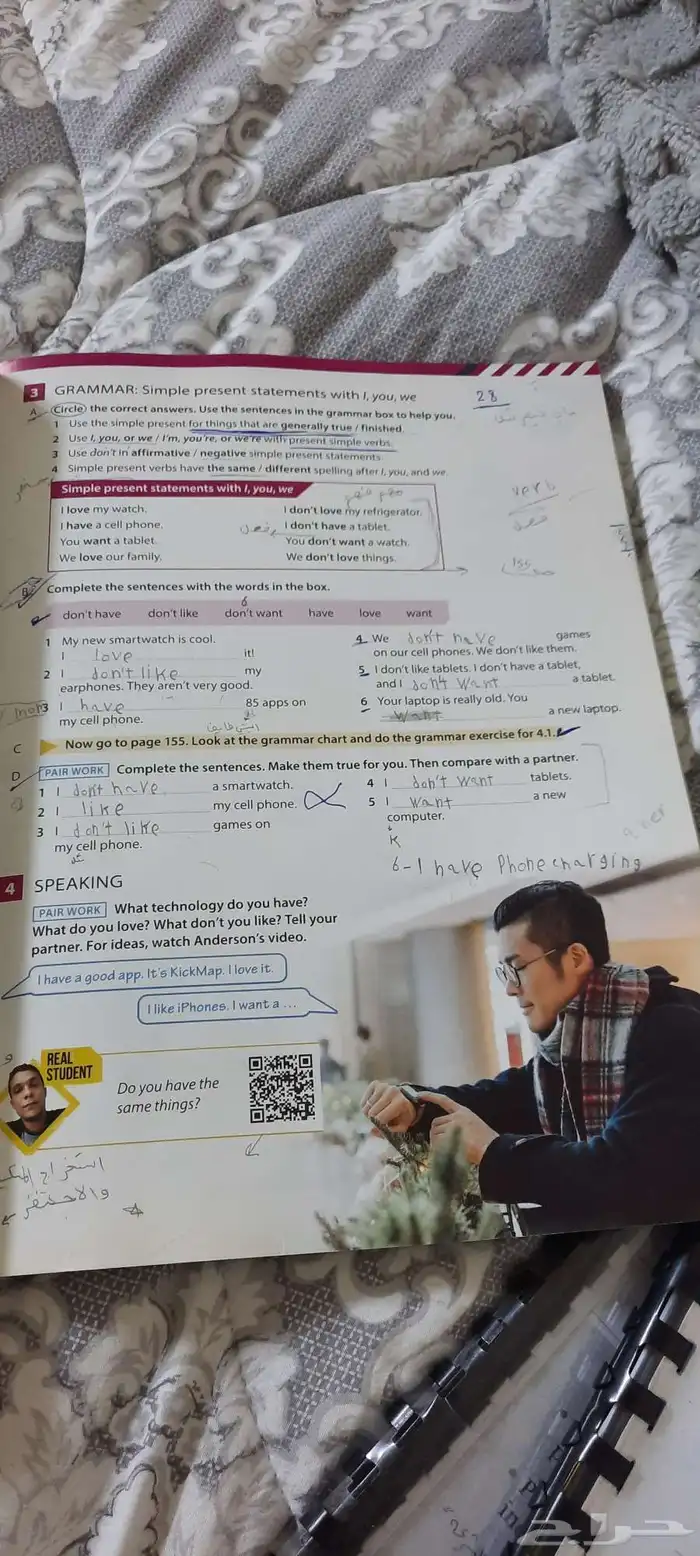 3 GRAMMAR: Simple present statements with I, you, we
28
A Circle the correct answers. Use the sentences in the grammar box to help you.
1 Use the simple present for things that are generally true / finished.
2 Use I, you, or we / I'm, you're, or we're with present simple verbs.
3 Use don't in affirmative / negative simple present statements.
4 Simple present verbs have the same / different spelling after I, you, and we.
Simple present statements with I, you, we
verb
I love my watch. I don't love my refrigerator.
I have a cell phone. I don't have a tablet.
You want a tablet. You don't want a watch.
We love our family. We don't love things.
B Complete the sentences with the words in the box.
6
don't have don't like don't want have love want
1 My new smartwatch is cool.
I love it!
2 I don't like my
earphones. They aren't very good.
3 I have 85 apps on
my cell phone.
4 We don't have games
on our cell phones. We don't like them.
5 I don't like tablets. I don't have a tablet,
and I don't want a tablet.
6 Your laptop is really old. You
want a new laptop.
C Now go to page 155. Look at the grammar chart and do the grammar exercise for 4.1.
D PAIR WORK Complete the sentences. Make them true for you. Then compare with a partner.
1 I don't have a smartwatch.
2 I like my cell phone.
3 I don't like games on
my cell phone.
4 I don't want tablets.
5 I want a new
computer.
K
6-I have Phone charging
4 SPEAKING
PAIR WORK What technology do you have?
What do you love? What don't you like? Tell your
partner. For ideas, watch Anderson's video.
I have a good app. It's KickMap. I love it.
I like iPhones. I want a ...
REAL
STUDENT
Do you have the
same things?
استخراج
حراج